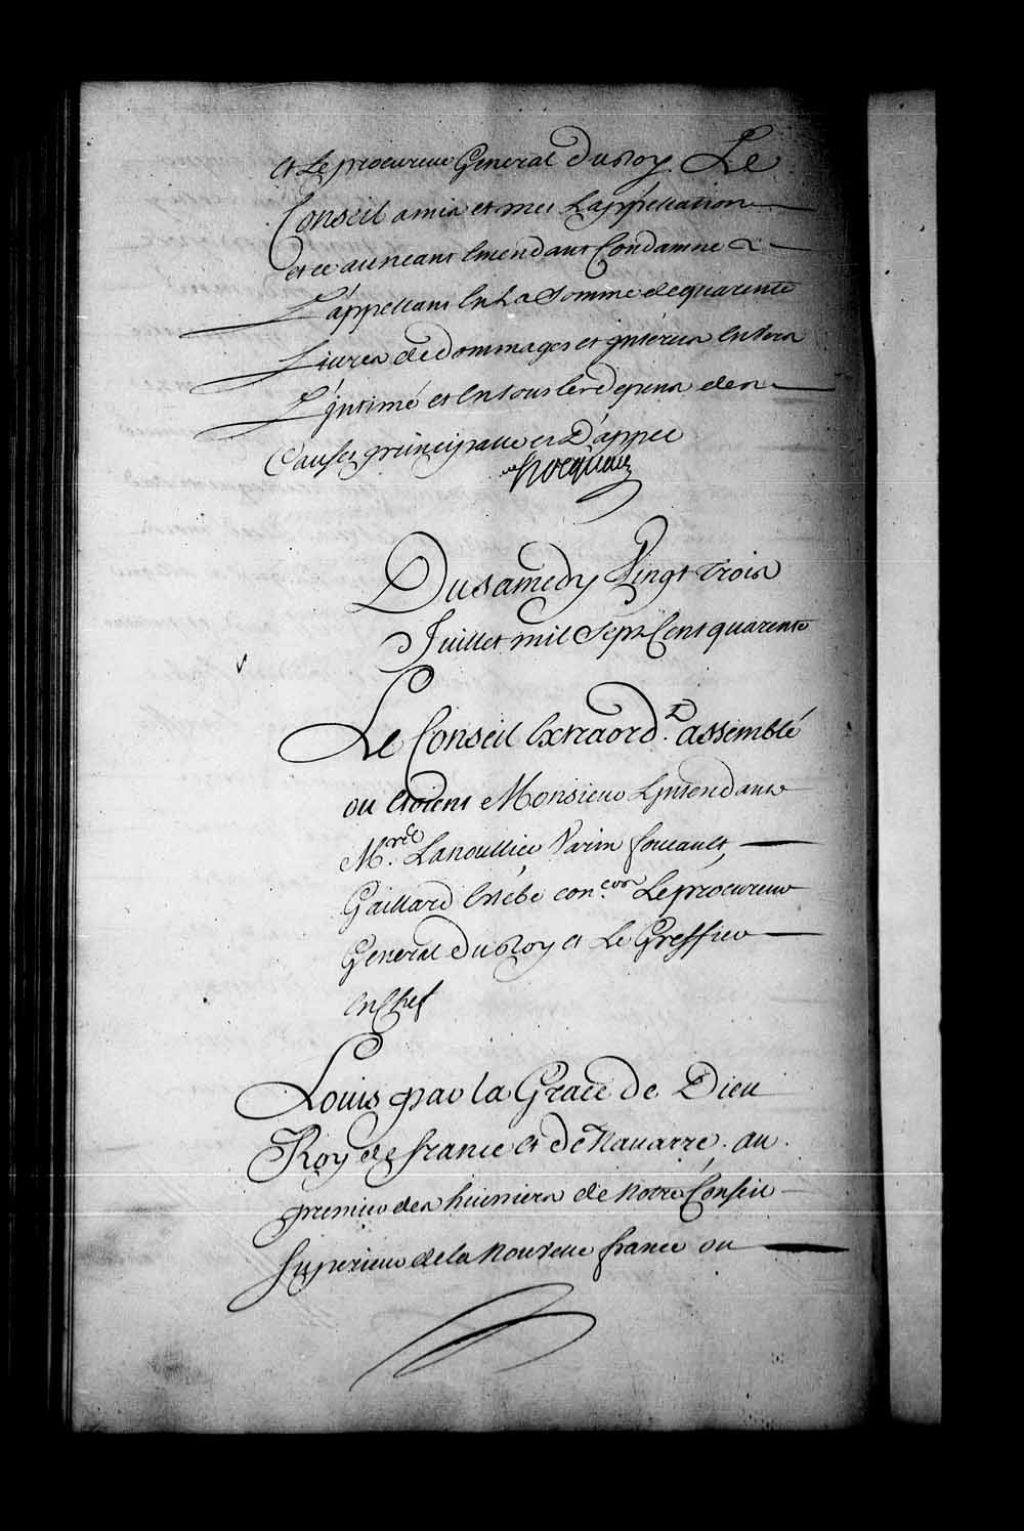 et Le procureur General Du Roy Le
Conseil a mis et met L'appellation
et ce au neant Emendant Condamne
L'appellant En La Somme de quarente
Livres de dommages et jnterets Envers
L'jntimé et En tous les depens des
Causes principalle et D'appel
hocquart
Du samedy Vingt trois
Juillet mil Sept Cent quarente
Le Conseil Extraord.t assemblé
ou Etoient Monsieur L'jntendant
M.rs Lanoullier Varin foucault
Gaillard Estebe con.ers Le procureur
General du Roy et Le Greffier
En Chef
Louis par la Grace de Dieu
Roy de france et de Navarre. au
premier des huissiers de Notre Conseil
Superieur de la Nouvelle france ou